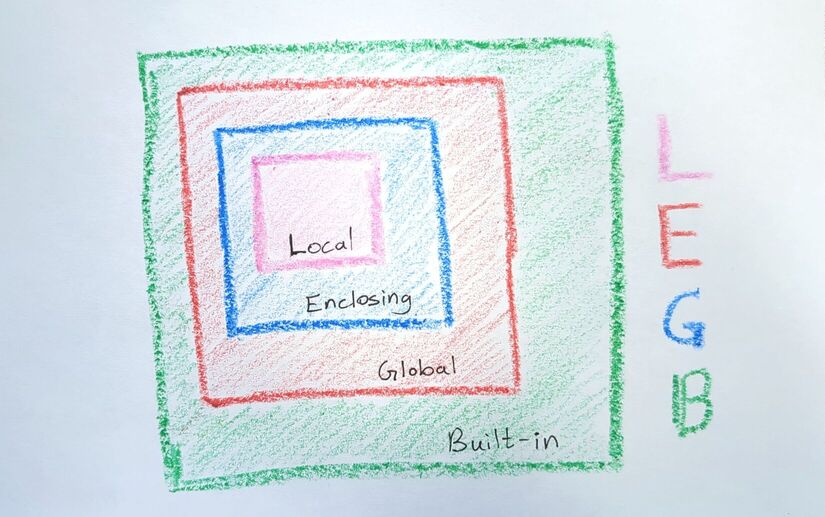 Local
Enclosing
Global
Built-in
L
E
G
B